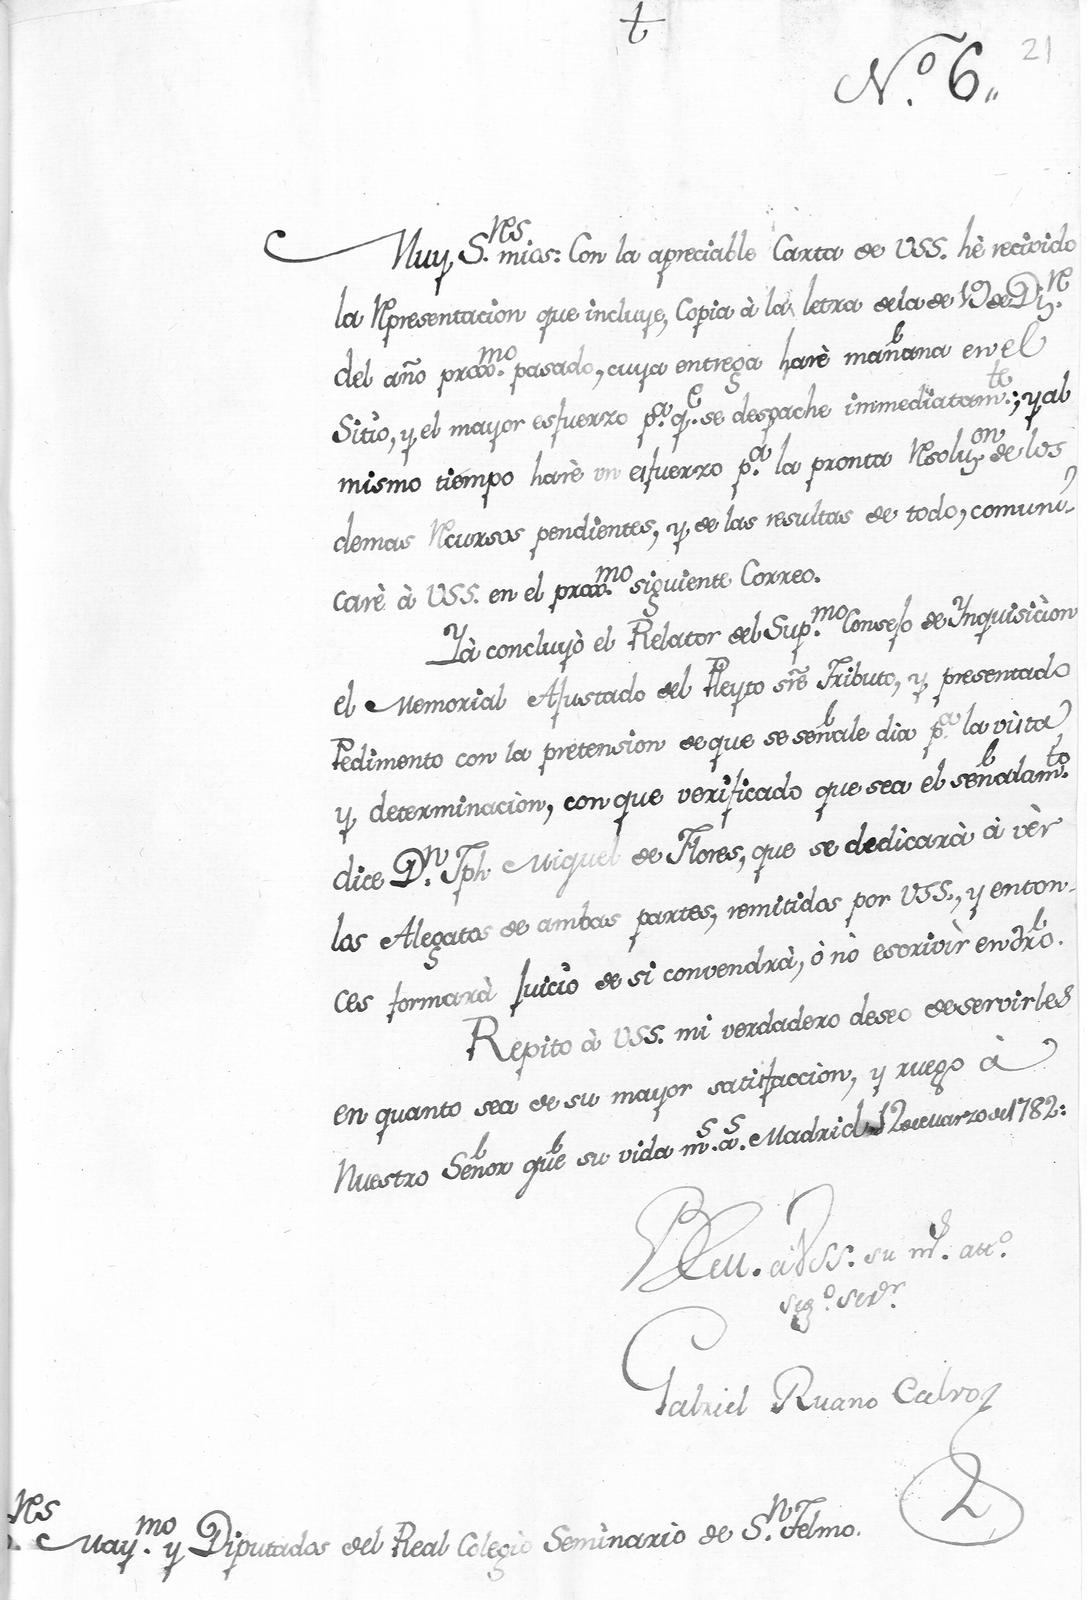 †
21
N.º 6.,
Muy S.res mios: Con la apreciable Carta de VSS. hè recivido
la Representacion que incluye, Copia à la letra de la de 19 de Diz.re
del año prox.mo pasado, cuya entrega harè mañana en el
Sitio, y el mayor esfuerzo p.a q.e se despache immediatam.te; y al
mismo tiempo harè vn esfuerzo p.a la pronta Resoluz.on de los
demas Recursos pendientes, y de las resultas de todo, comuni-
carè à VSS. en el prox.mo siguiente Correo.
Yà concluyò el Relator del Sup.mo Consejo de Ynquisiciòn
el Memorial Ajustado del Pleyto sre Tributo, y presentado
Pedimento con la pretension de que se señale dia p.a la vista
y determinaciòn, con que verificado que sea el señalam.to
dice D.n Jph Miguel de Flores, que se dedicarà à vèr
los Alegatos de ambas partes, remitidos por VSS., y enton-
ces formarà juicio de si convendrà, ò nò escrivìr en dro.
Repito à VSS. mi verdadero deseo de servirles
en quanto sea de su mayor satisfacciòn, y ruego à
Nuestro Señor gue su vida m.s a.s Madrid 12 de Marzo de 1782:
BLM. à VSS. su m.s att.o
seg.o serv.r
Gabriel Ruano Calvo
S.res May.mo y Diputados del Real Colegio Seminario de S.n Telmo.